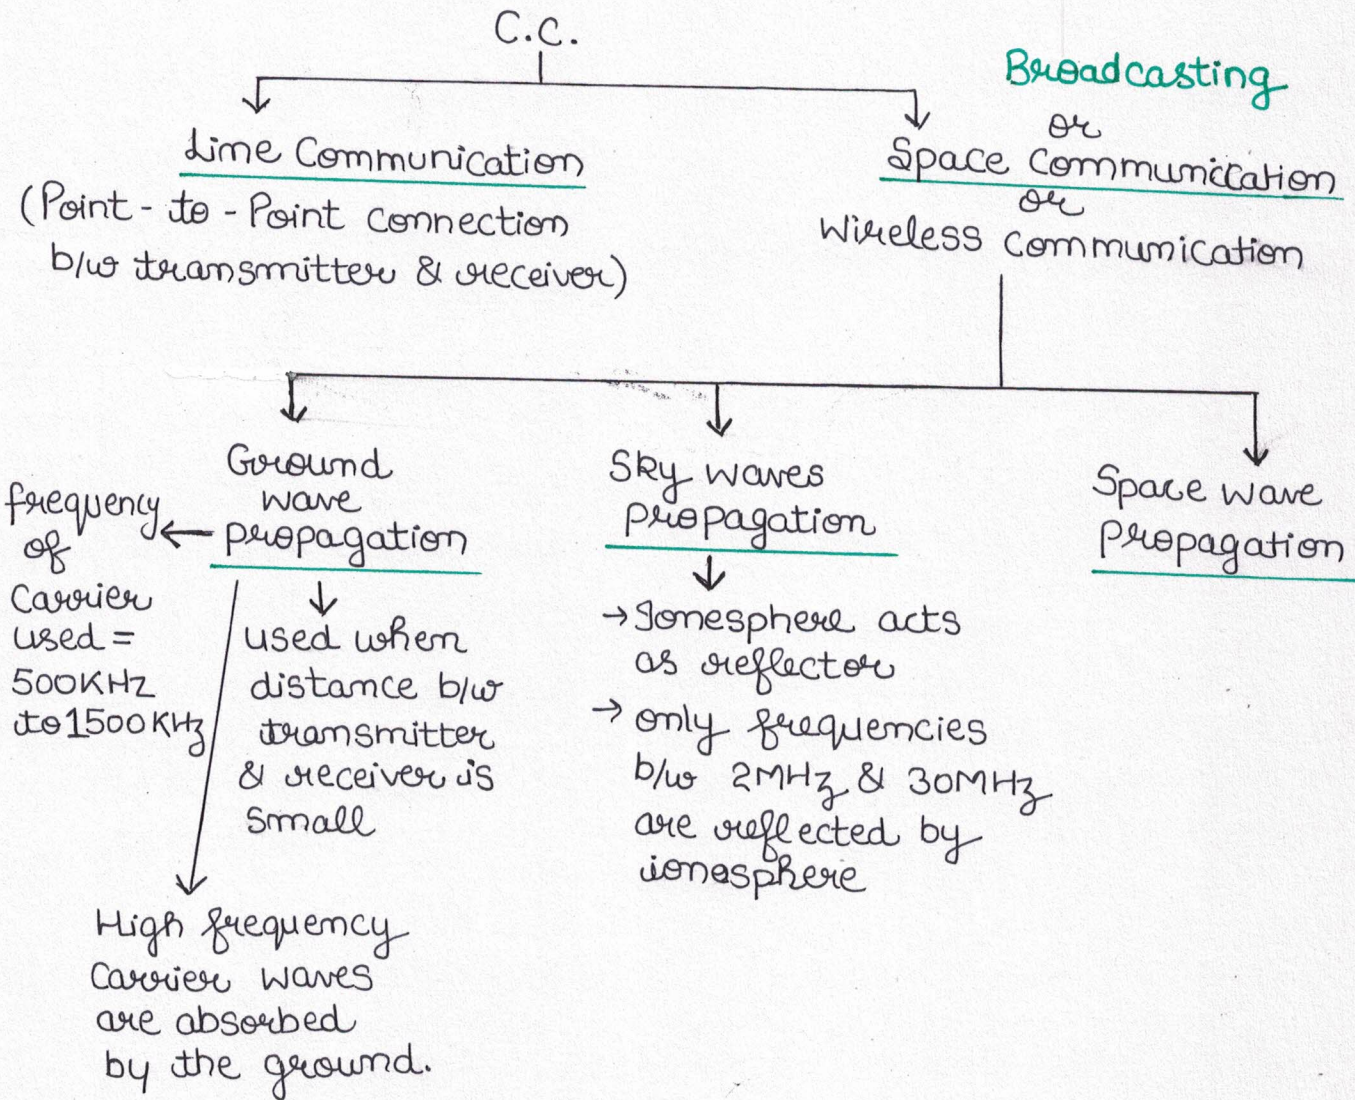 C.C.
Lime Communication
(Point - to - Point connection
b/w transmitter & receiver)
Broadcasting
or
Space communication
or
wireless communication
Ground
wave
propagation
frequency
of
carrier
used =
500KHz
to 1500KHz
used when
distance b/w
transmitter
& receiver is
small
High frequency
carrier waves
are absorbed
by the ground.
Sky waves
propagation
→ Ionesphere acts
as reflector
→ only frequencies
b/w 2MHz & 30MHz
are reflected by
ionesphere
Space wave
propagation